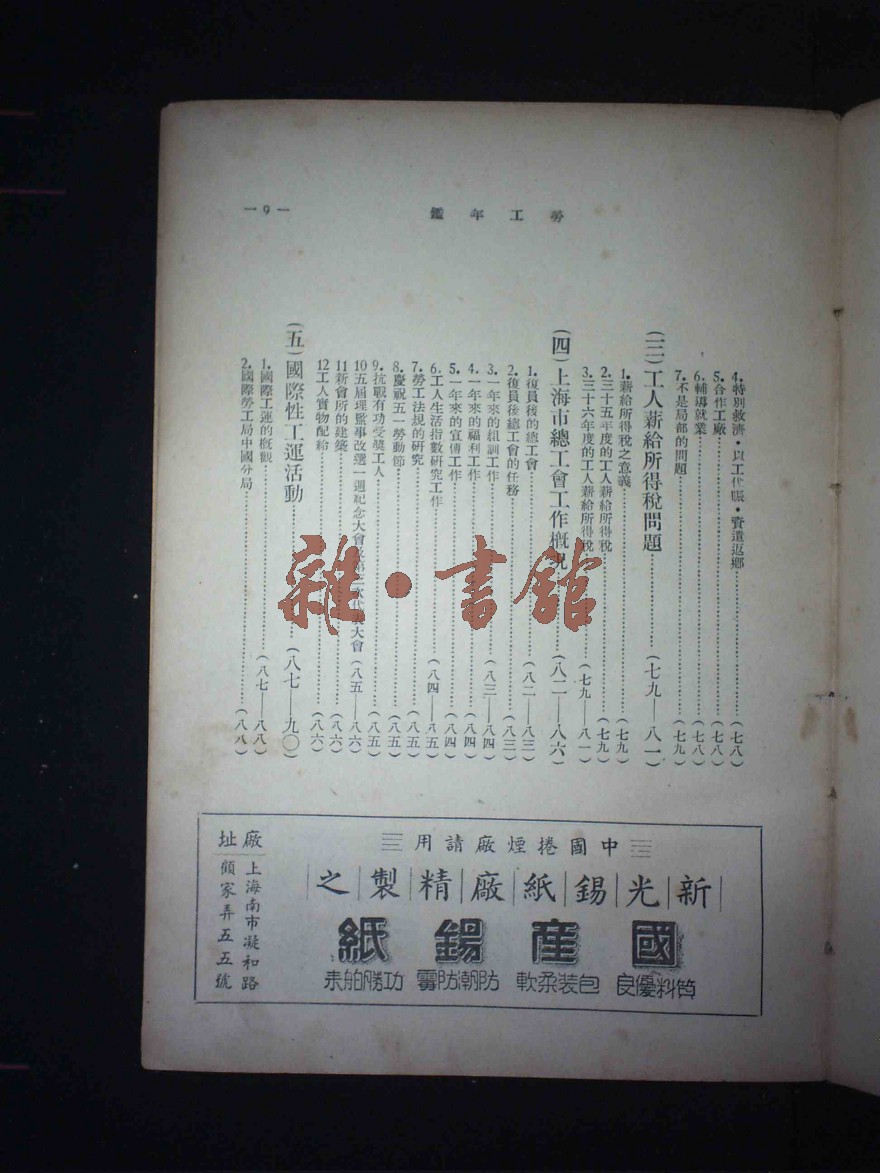 勞工年鑑
—9—
4.特別救濟・以工代賑・資遣返鄉……(七八)
5.合作工廠……(七八)
6.輔導就業……(七八)
7.不是局部的問題……(七九)
(三)工人薪給所得稅問題……(七九—八一)
1.薪給所得稅之意義……(七九)
2.三十五年度的工人薪給所得稅……(七九)
3.三十六年度的工人薪給所得稅……(七九—八一)
(四)上海市總工會工作概況……(八二—八六)
1.復員後的總工會……(八二—八三)
2.復員後總工會的任務……(八三)
3.一年來的組訓工作……(八三—八四)
4.一年來的福利工作……(八四)
5.一年來的宣傳工作……(八四)
6.工人生活指數研究工作……(八四—八五)
7.勞工法規的研究……(八五)
8.慶祝五一勞動節……(八五)
9.抗戰有功受獎工人……(八五)
10五屆理監事改選一週紀念大會及第二次代表大會(八五—八六)
11新會所的建築……(八六)
12工人實物配給……(八六)
(五)國際性工運活動……(八七—九〇)
1.國際工運的概觀……(八七—八八)
2.國際勞工局中國分局……(八八)
中國捲煙廠請用
新光錫紙廠精製之
國產錫紙
質料優良 包裝柔軟 防潮防霉 功勝舶來
廠址
上海南市凝和路
顏家弄五五號
雜・書館